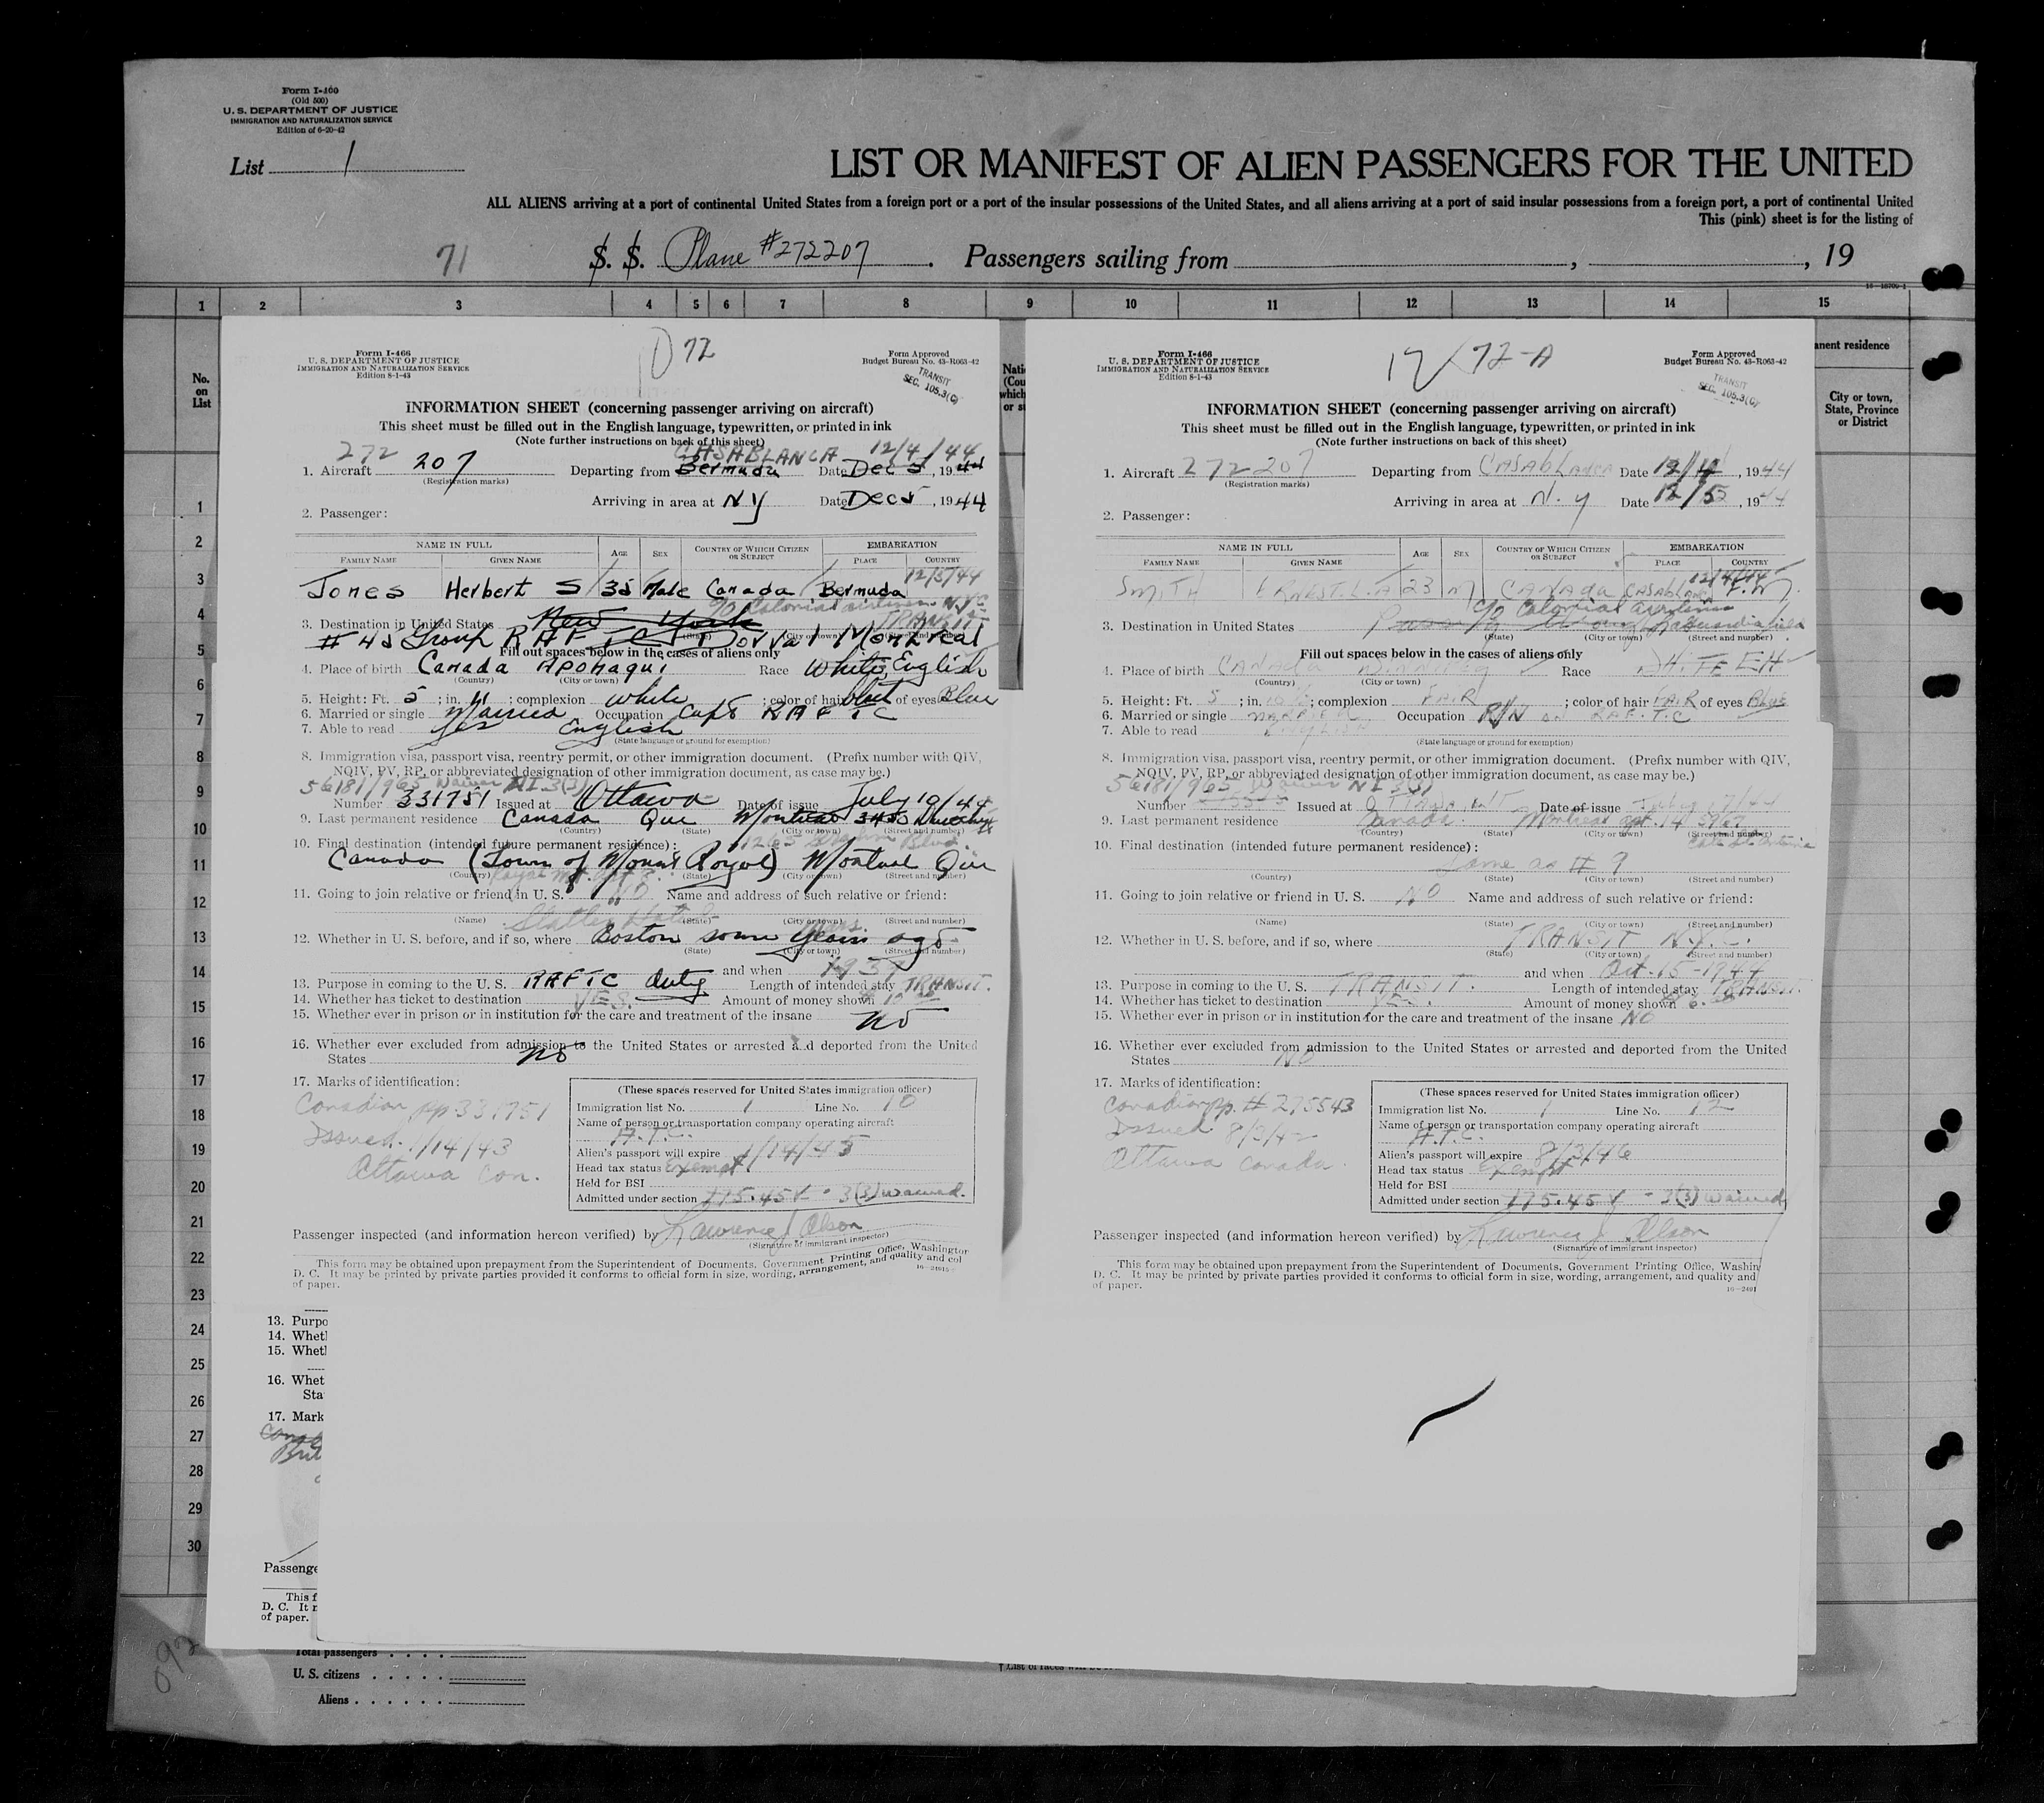 Form I-460
(Old 500)
U. S. DEPARTMENT OF JUSTICE
IMMIGRATION AND NATURALIZATION SERVICE
Edition of 6-20-42
List 1
LIST OR MANIFEST OF ALIEN PASSENGERS FOR THE UNITED
ALL ALIENS arriving at a port of continental United States from a foreign port or a port of the insular possessions of the United States, and all aliens arriving at a port of said insular possessions from a foreign port, a port of continental United
This (pink) sheet is for the listing of
71
S. S. Plane #272207. Passengers sailing from , , 19
1 2 3 4 5 6 7 8 9 10 11 12 13 14 15
No. on List
anent residence
City or town, State, Province or District
1
2
3
4
5
6
7
8
9
10
11
12
13
14
15
16
17
18
19
20
21
22
23
24
25
26
27
28
29
30
10 72
Form I-466
U. S. DEPARTMENT OF JUSTICE
IMMIGRATION AND NATURALIZATION SERVICE
Edition 8-1-43
Form Approved
Budget Bureau No. 43-R063-42
TRANSIT
SEC. 105.3(C)
INFORMATION SHEET (concerning passenger arriving on aircraft)
This sheet must be filled out in the English language, typewritten, or printed in ink
(Note further instructions on back of this sheet)
CASABLANCA 12/4/44
1. Aircraft 272 207 Departing from Bermuda Date Dec 5, 1944
(Registration marks)
Arriving in area at NY Date Dec 5, 1944
2. Passenger:
NAME IN FULL AGE SEX COUNTRY OF WHICH CITIZEN OR SUBJECT EMBARKATION
FAMILY NAME GIVEN NAME PLACE COUNTRY
12/5/44
Jones Herbert S 35 Male Canada Bermuda
c/o Colonial airlines N.Y.C.
TRANSIT
3. Destination in United States New York
(State) (City or town) (Street and number)
# 45 Group RAF TC Dorval Montreal
Fill out spaces below in the cases of aliens only
4. Place of birth Canada Apohaqui Race White, English
(Country) (City or town)
5. Height: Ft. 5; in. 11; complexion White; color of hair of eyes Blue
6. Married or single Married Occupation Capt RAFTC
7. Able to read yes English
(State language or ground for exemption)
8. Immigration visa, passport visa, reentry permit, or other immigration document. (Prefix number with QIV, NQIV, PV, RP, or abbreviated designation of other immigration document, as case may be.)
56181/965 Waiver NI 3(3)
Number 331751 Issued at Ottawa Date of issue July 10/44
9. Last permanent residence Canada Que Montreal
(Country) (State) (City or town) (Street and number)
10. Final destination (intended future permanent residence):
Canada (Town of Mount Royal) Montreal Que
(Country) (State) (City or town) (Street and number)
11. Going to join relative or friend in U. S. No Name and address of such relative or friend:
Statler Hotel
(Name) (State) (City or town) (Street and number)
12. Whether in U. S. before, and if so, where Boston some years ago
(State) (City or town) (Street and number)
and when 1937
13. Purpose in coming to the U. S. RAFTC duty Length of intended stay TRANSIT.
14. Whether has ticket to destination YES. Amount of money shown
15. Whether ever in prison or in institution for the care and treatment of the insane No
16. Whether ever excluded from admission to the United States or arrested and deported from the United States No
17. Marks of identification:
Canadian pp 331751
Issued. 1/14/43
Ottawa Can.
(These spaces reserved for United States immigration officer)
Immigration list No. 1 Line No. 10
Name of person or transportation company operating aircraft
A.T.C.
Alien's passport will expire 1/14/45
Head tax status Exempt
Held for BSI
Admitted under section 175.45 - 3(3) waived.
Passenger inspected (and information hereon verified) by Lawrence J. Olson
(Signature of immigrant inspector)
This form may be obtained upon prepayment from the Superintendent of Documents, Government Printing Office, Washington
D. C. It may be printed by private parties provided it conforms to official form in size, wording, arrangement, and quality and col
of paper.
12 72-A
Form I-466
U. S. DEPARTMENT OF JUSTICE
IMMIGRATION AND NATURALIZATION SERVICE
Edition 8-1-43
Form Approved
Budget Bureau No. 43-R063-42
TRANSIT
SEC. 105.3(C)
INFORMATION SHEET (concerning passenger arriving on aircraft)
This sheet must be filled out in the English language, typewritten, or printed in ink
(Note further instructions on back of this sheet)
1. Aircraft 272207 Departing from Casablanca Date 12/4, 1944
(Registration marks)
Arriving in area at N.Y Date 12/5, 1944
2. Passenger:
NAME IN FULL AGE SEX COUNTRY OF WHICH CITIZEN OR SUBJECT EMBARKATION
FAMILY NAME GIVEN NAME PLACE COUNTRY
12/4/44
Smith Ernest. L. A 23 M CANADA Casablanca F.M.
c/o Colonial airlines
3. Destination in United States
(State) (City or town) (Street and number)
Fill out spaces below in the cases of aliens only
4. Place of birth CANADA Winnipeg Race WHITE EH
(Country) (City or town)
5. Height: Ft. 5; in. ; complexion FAIR; color of hair FAIR of eyes Blue
6. Married or single Occupation R/N RAF.T.C
7. Able to read English
(State language or ground for exemption)
8. Immigration visa, passport visa, reentry permit, or other immigration document. (Prefix number with QIV, NQIV, PV, RP, or abbreviated designation of other immigration document, as case may be.)
56181/965 Waiver NI 3(3)
Number Issued at OTTAWA Date of issue
9. Last permanent residence Canada. Montreal apt. 14
(Country) (State) (City or town) (Street and number)
10. Final destination (intended future permanent residence):
Same as # 9
(Country) (State) (City or town) (Street and number)
11. Going to join relative or friend in U. S. NO Name and address of such relative or friend:
(Name) (State) (City or town) (Street and number)
12. Whether in U. S. before, and if so, where TRANSIT N.Y.
(State) (City or town) (Street and number)
and when Oct. 15-1944
13. Purpose in coming to the U. S. TRANSIT. Length of intended stay TRANSIT.
14. Whether has ticket to destination YES. Amount of money shown
15. Whether ever in prison or in institution for the care and treatment of the insane NO
16. Whether ever excluded from admission to the United States or arrested and deported from the United States NO
17. Marks of identification:
Canadian pp. # 275543
Issued 8/3/42
Ottawa Canada.
(These spaces reserved for United States immigration officer)
Immigration list No. 1 Line No. 12
Name of person or transportation company operating aircraft
A.T.C.
Alien's passport will expire 8/3/46
Head tax status Exempt
Held for BSI
Admitted under section 175.45 - 3(3) waived
Passenger inspected (and information hereon verified) by Lawrence J. Olson
(Signature of immigrant inspector)
This form may be obtained upon prepayment from the Superintendent of Documents, Government Printing Office, Washin
D. C. It may be printed by private parties provided it conforms to official form in size, wording, arrangement, and quality and
of paper.
13. Purpo
14. Whet
15. Whet
16. Whet
Sta
17. Mark
Passenge
This f
D. C. It r
of paper.
Total passengers
U. S. citizens
Aliens
092